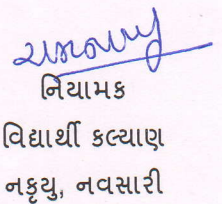 નિયામક
વિદ્યાર્થી કલ્યાણ
નકૃયુ, નવસારી